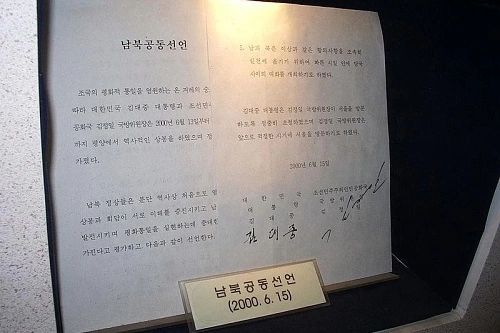 남북공동선언
조국의 평화적 통일을 염원하는 온 겨레의 숭
따라 대한민국 김대중 대통령과 조선민
공화국 김정일 국방위원장은 2000년 6월 13일부터
까지 평양에서 역사적인 상봉을 하였으며 정
가졌다.
남북 정상들은 분단 역사상 처음으로 열
상봉과 회담이 서로 이해를 증진시키고 남
발전시키며 평화통일을 실현하는데 중대한
가진다고 평가하고 다음과 같이 선언한다.
5. 남과 북은 이상과 같은 합의사항을 조속히
실천에 옮기기 위하여 빠른 시일 안에 당국
사이의 대화를 개최하기로 하였다.
김대중 대통령은 김정일 국방위원장이 서울을 방문
하도록 정중히 초청하였으며 김정일 국방위원장은
앞으로 적절한 시기에 서울을 방문하기로 하였다.
2000년 6월 15일
대한민국 조선민주주의인민공화국
대통령 국방위
김대중 김정일
김대중
남북공동선언
(2000.6.15)